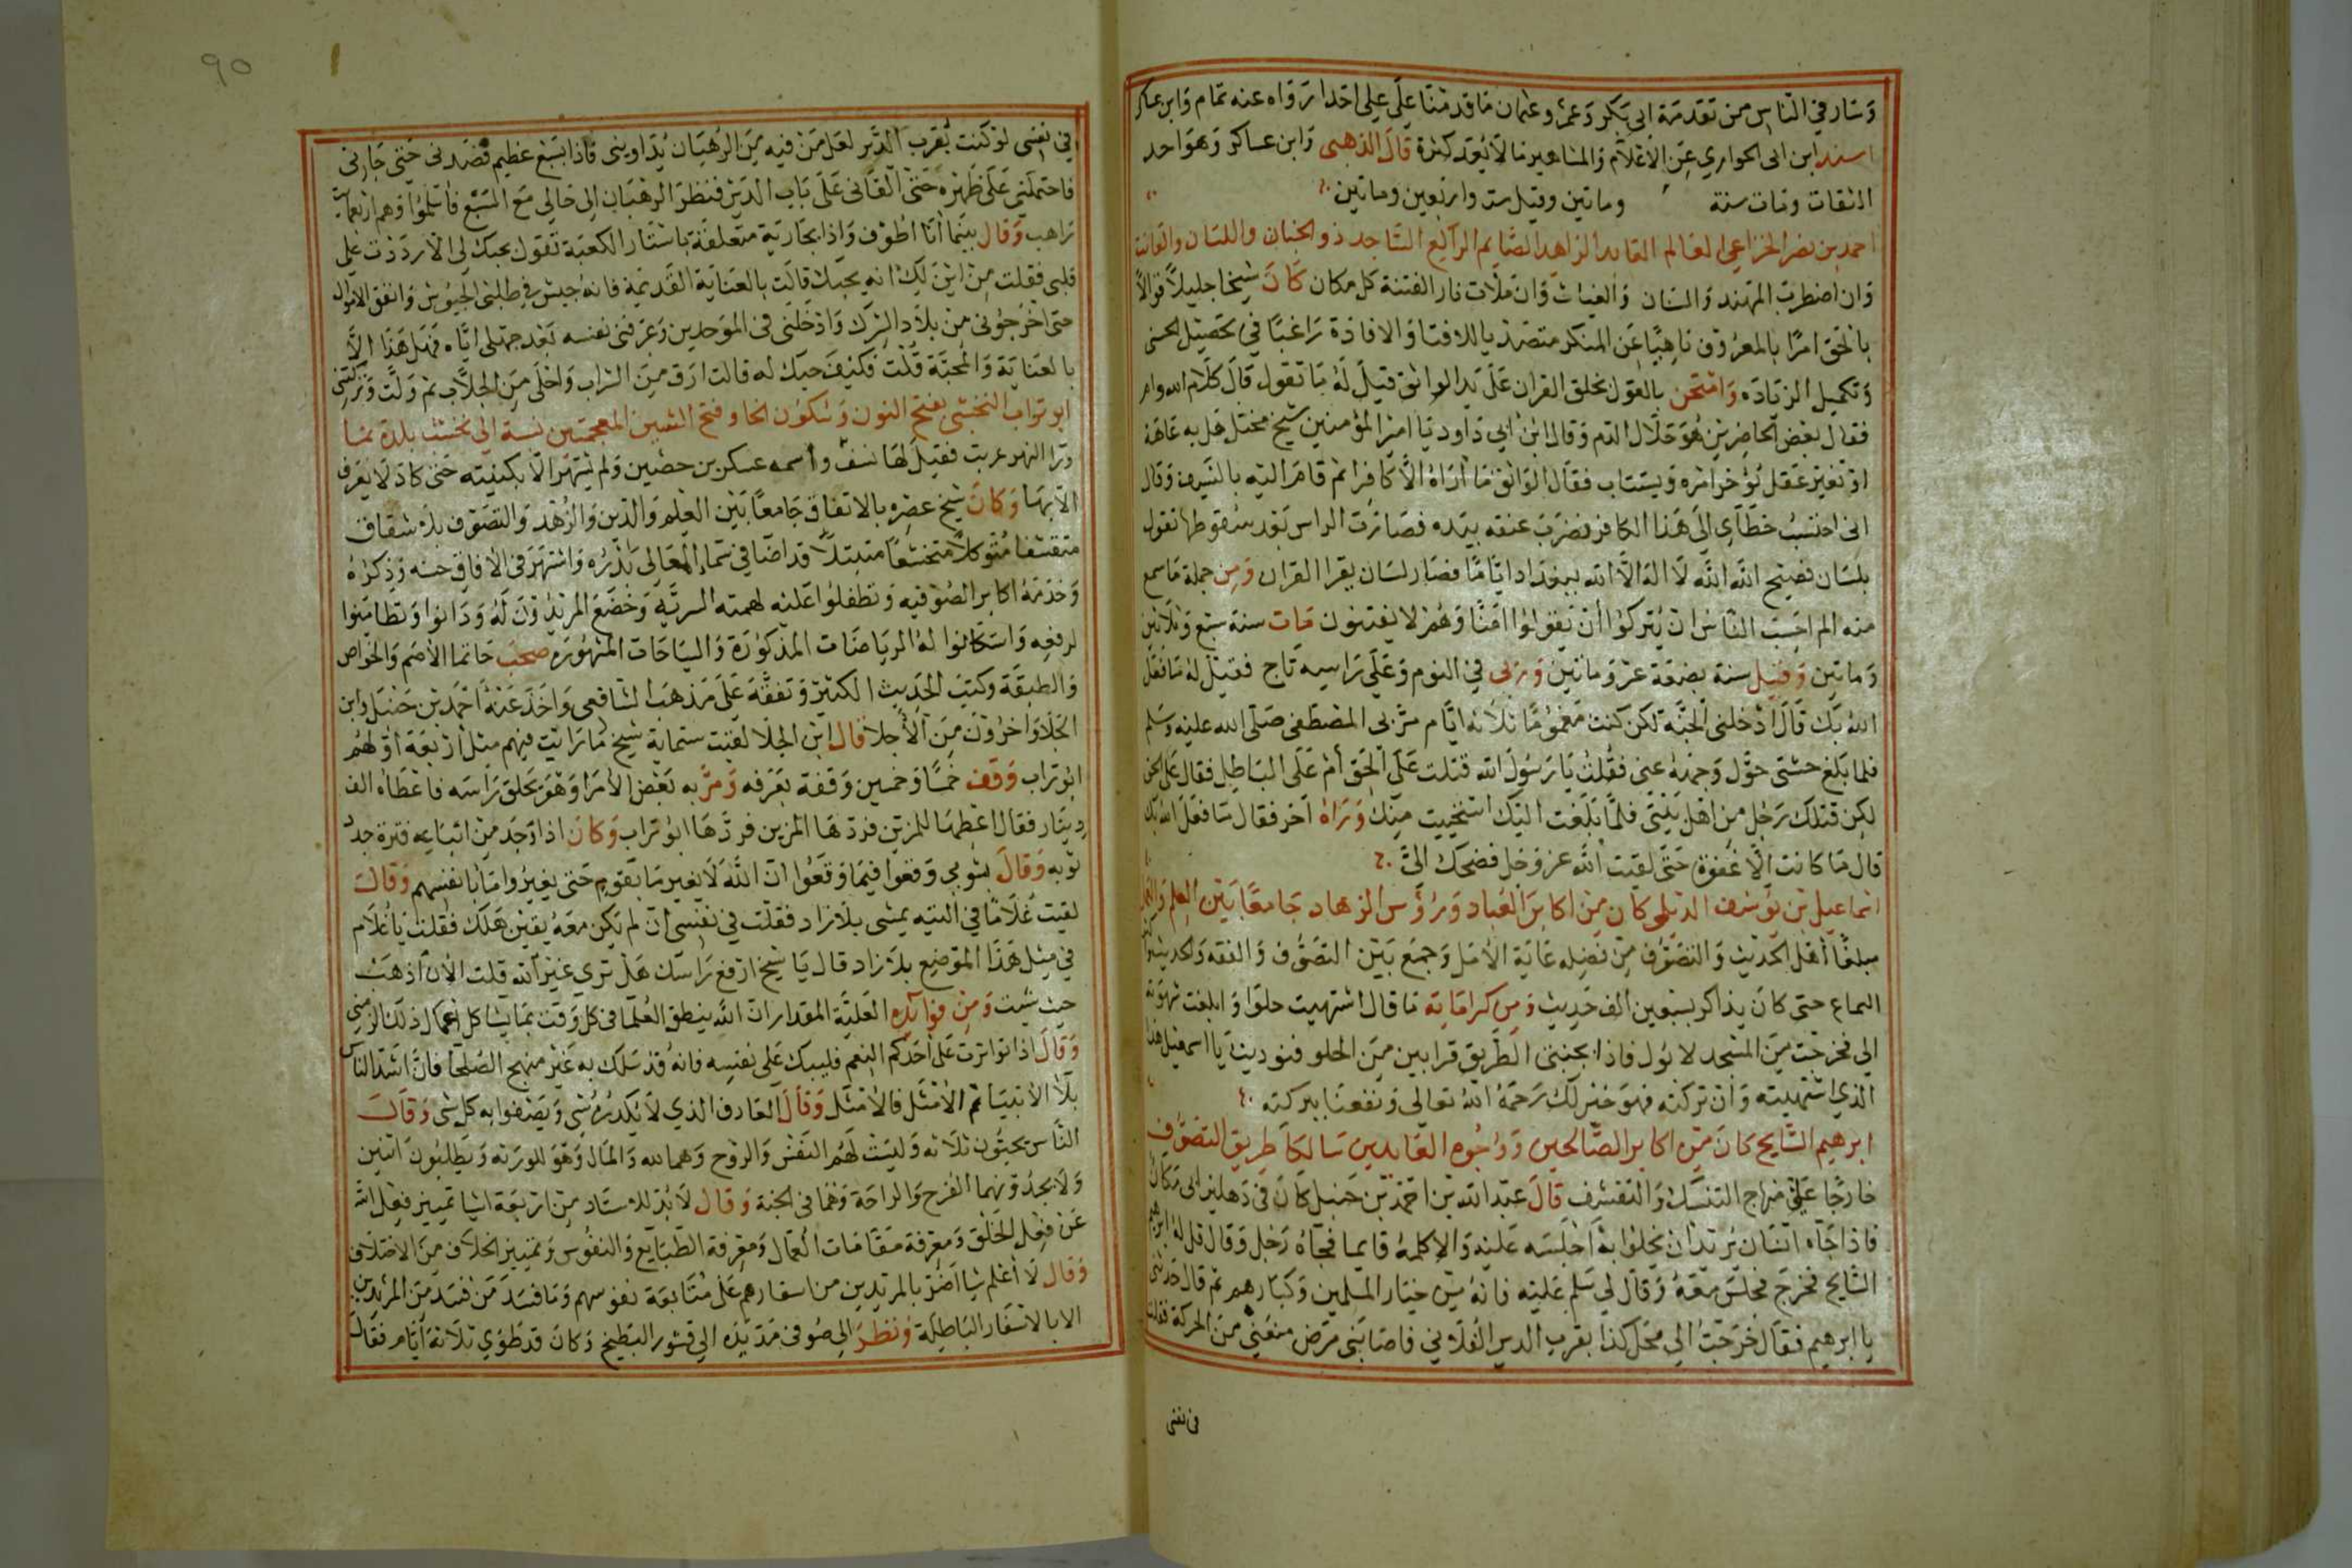 وسار في الناس من تقدمة ابي بكر وعمر وعثمان ما قدمنا على علي احدا رواه عنه تمام وابن عساكر
اسند ابن ابي الحواري عن الاعلام والمشاهير ما لا يعد كثرة قال الذهبي وابن عساكر وهو احد
الثقات ومات سنة وماتين وقيل ست واربعين وماتين
احمد بن نصر الخزاعي العالم العابد الزاهد الصايم الراكع الساجد ذو الجنان واللسان والثبات
وان اضطرب المهند والسنان والغياث وان ملات نار الفتنة كل مكان كان شيخا جليلا قوالا
بالحق امرا بالمعروف ناهيا عن المنكر متصديا للافتا والافادة راغبا في تحصيل الحسنى
وتكميل الزياده وامتحن بالقول بخلق القران على يد الواثق قيل له ما تقول قال كلام الله
فقال بعض الحاضرين هو حلال الدم وقال ابن ابي داود يا امير المؤمنين شيخ مختل لعل به عاهة
او تغير عقل يؤخر امره ويستتاب فقال الواثق ما اراه الا كافرا ثم قام اليه بالسيف وقال
اني احتسب خطاي الى هذا الكافر فضرب عنقه بيده فصارت الراس بعد سقوطها تقول
بلسان فصيح الله الله لا اله الا الله ببغداد اياما فصار لسان يقرا القران ومن جملة ما سمع
منه الم احسب الناس ان يتركوا ان يقولوا امنا وهم لا يفتنون مات سنة سبع وثلاثين
وماتين وقيل سنة بضعة عشر وماتين وروي في النوم وعلى راسه تاج فقيل له ما فعل
الله بك قال ادخلني الجنة لكن كنت مغموما ثلاثة ايام مر بي المصطفى صلى الله عليه وسلم
فلما بلغ خشبتي حول وجهه عني فقلت يا رسول الله قتلت على الحق أم على الباطل فقال على الحق
لكن قتلك رجل من اهل بيتي فلما بلغت اليك استحييت منك وراه اخر فقال ما فعل الله بك
قال ما كانت الا غفوة حتى لقيت الله عز وجل فضحك الي
اسماعيل بن يوسف الديلمي كان من اكابر العباد ورؤس الزهاد جامعا بين العلم والعمل
مبلغا أهل الحديث والتصوف من فضله غاية الامل وجمع بين التصوف والفقه والحديث
السماع حتى كان يذاكر بسبعين الف حديث ومن كراماته ما قال اشتهيت حلوا وابلغت شهوته
الي فخرجت من المسجد لابول فاذا بجنبتي الطريق قرابين من الحلو فنوديت يا اسمعيل هذا
الذي اشتهيته وان تركته فهو خير لك رحمه الله تعالى ونفعنا ببركته
ابرهيم السايح كان من اكابر الصالحين ووجوه العابدين سالكا طريق التصوف
خارجا على منهاج التنسك والتقشف قال عبد الله بن احمد بن حنبل كان في دهليز ابي دكان
فاذا جاه انسان يريد ان يخلوا به اجلسه عليه والا كلمه قايما فجاه رجل وقال قل له ابرهيم
السايح فخرج فجلس معه وقال لي سلم عليه فانه من خيار المسلمين وكبارهم ثم قال حدثني
يا ابرهيم فقال خرجت الى محل كذا بقرب الدير الفلاني فاصابني مرض منعني من الحركة فقلت
في نفسي
90
في نفسي لو كنت بقرب الدير لعل من فيه من الرهبان يداويني فاذا بسبع عظيم قصدني حتى جاءني
فاحتملني على ظهره حتى القاني على باب الدير فنظر الرهبان الى حالي مع السبع فاسلموا وهم اربعماية
راهب وقال بينما انا اطوف واذا بجارية متعلقة باستار الكعبة تقول بحبك لي الا رددت علي
قلبي فقلت من اين لك انه يحبك قالت بالعناية القديمة فانه جيش في طلبي الجيوش وانفق الاموال
حتى اخرجوني من بلاد الشرك وادخلني في الموحدين وعرفني نفسه بعد جهلي اياه فهل هذا الا
بالعناية والمحبة قلت فكيف حبك له قالت ارق من الشراب واحلى من الجلاب ثم ولت وتركتني
ابو تراب النخشبي بفتح النون وسكون الخا وفتح الشين المعجمتين نسبة الى نخشب بلدة بما
ورا النهر عربت فقيل لها نسف واسمه عسكر بن حصين ولم يشتهر الا بكنيته حتى كاد لا يعرف
الا بها وكان شيخ عصره بالاتفاق جامعا بين العلم والدين والزهد والتصوف بلا شقاق
متقشفا متوكلا متخشعا متبتلا قد اضا في سماء المعالي بدره واشتهر في الافاق حسنه وذكره
وخدمه اكابر الصوفيه وتطفلوا عليه لهمته السريه وخضع المريدون له ودانوا وتطامنوا
لرفعه واستكانوا له الرياضات المذكورة والسياحات المشهوره صحب حاتما الاصم والخواص
والطبقة وكتب الحديث الكثير وتفقه على مذهب الشافعي واخذ عنه احمد بن حنبل وابن
الجلا واخرون من الاجلا قال ابن الجلا لقيت ستماية شيخ ما رايت فيهم مثل اربعة اولهم
ابو تراب وقف خمسا وخمسين وقفة بعرفه ومر به بعض الامرا وهو يحلق راسه فاعطاه الف
دينار فقال اعطها للمزين فردها المزين فردها ابو تراب وكان اذا وجد من اتباعه فترة جدد
توبه وقال بشومي وقعوا فيما وقعوا ان الله لا يغير ما بقوم حتى يغيروا ما بانفسهم وقال
لقيت غلاما في التيه يمشي بلا زاد فقلت في نفسي ان لم يكن معه يقين هلك فقلت يا غلام
في مثل هذا الموضع بلا زاد قال يا شيخ ارفع راسك هل ترى غير الله قلت الان اذهب
حيث شيت ومن فوايده العلية المقدار ان الله ينطق العلما في كل وقت بما يشاكل اعمال ذلك الزمن
وقال اذا تواترت على احدكم النعم فليبك على نفسه فانه قد سلك به غير منهج الصلحا فان اشد الناس
بلا الانبيا ثم الامثل فالامثل وقال العارف الذي لا يكدره شي ويصفوا به كل شي وقال
الناس يحبون ثلاثه وليست لهم النفس والروح وهما لله والمال وهو للورثه ويطلبون اثنين
ولا يجدونهما الفرح والراحة وهما في الجنة وقال لا بد للاستاد من اربعة اشيا تمييز فعل الله
عن فعل الخلق ومعرفة مقامات العمال ومعرفة الطبايع والنفوس وتمييز الخلاف من الاختلاف
وقال لا اعلم شيا اضر بالمريدين من اسفارهم على متابعة نفوسهم وما فسد من فسد من المريدين
الا بالاسفار الباطلة ونظر الى صوفي مد يده الى قشور البطيخ وكان قد طوي ثلاثة ايام فقال